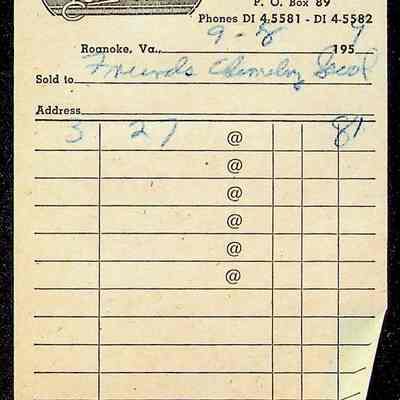 P. O. Box 89
Phones DI 4-5581 - DI 4-5582
Roanoke, Va., 9-8 1959
Sold to Friends
Address
3 27 @ 81
@
@
@
@
@